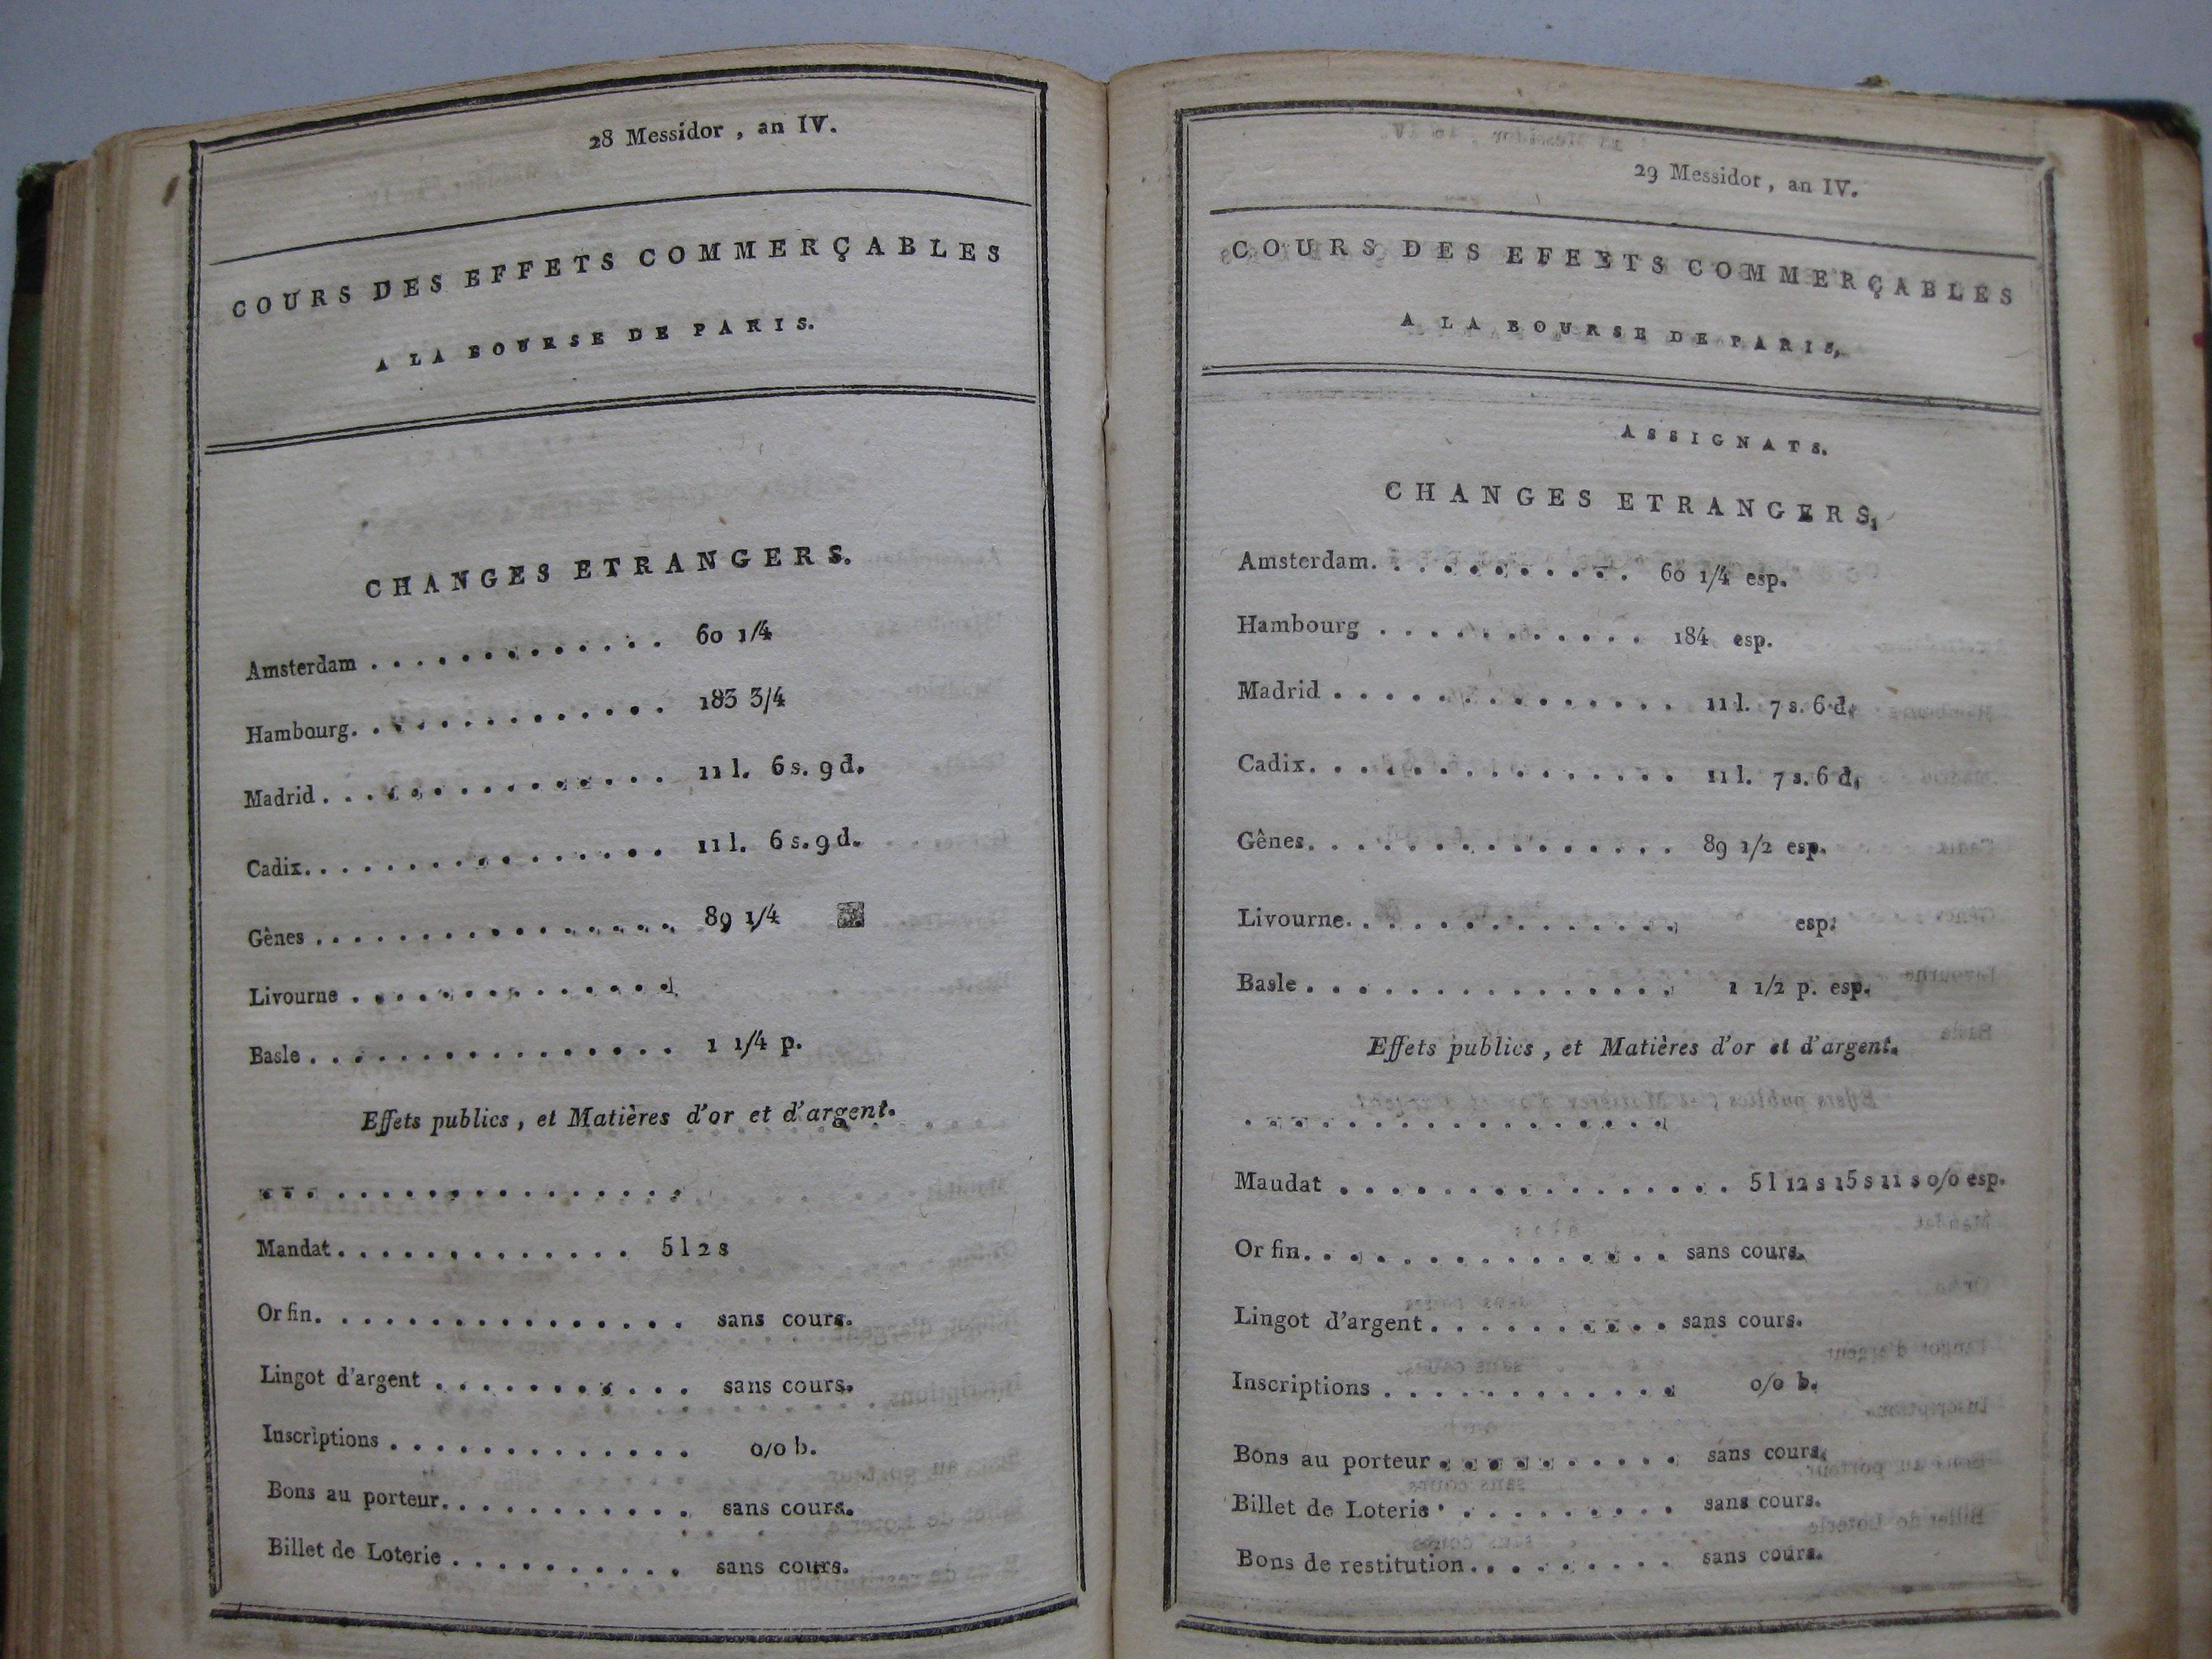 28 Messidor , an IV.
COURS DES EFFETS COMMERÇABLES
A LA BOURSE DE PARIS.
CHANGES ETRANGERS.
Amsterdam . . . . . . . . . . . . . 60 1/4
Hambourg. . . . . . . . . . . . . . 183 3/4
Madrid . . . . . . . . . . . . . . . 11 l. 6 s. 9 d.
Cadix. . . . . . . . . . . . . . . . 11 l. 6 s. 9 d.
Gênes . . . . . . . . . . . . . . . . 89 1/4
Livourne . . . . . . . . . . . . . .
Basle . . . . . . . . . . . . . . . . 1 1/4 p.
Effets publics , et Matières d'or et d'argent.
. . . . . . . . . . . . . . . . . .
Mandat. . . . . . . . . . . . . . 5 l 2 s
Or fin. . . . . . . . . . . . . . . . sans cours.
Lingot d'argent . . . . . . . . . . . sans cours.
Inscriptions . . . . . . . . . . . . . o/o b.
Bons au porteur. . . . . . . . . . . sans cours.
Billet de Loterie . . . . . . . . . . sans cours.
29 Messidor , an IV.
COURS DES EFEETS COMMERÇABLES
A LA BOURSE DE PARIS,
ASSIGNATS.
CHANGES ETRANGERS,
Amsterdam. . . . . . . . . . . 60 1/4 esp.
Hambourg . . . . . . . . . . . 184 esp.
Madrid . . . . . . . . . . . . . . 11 l. 7 s. 6 d.
Cadix. . . . . . . . . . . . . . . . 11 l. 7 s. 6 d.
Gênes. . . . . . . . . . . . . . . . 89 1/2 esp.
Livourne. . . . . . . . . . . . . . esp.
Basle . . . . . . . . . . . . . . . . 1 1/2 p. esp.
Effets publics , et Matières d'or et d'argent.
. . . . . . . . . . . . . . . . . .
Maudat . . . . . . . . . . . . . . . . . 5 l 12 s 15 s 11 s o/o esp.
Or fin. . . . . . . . . . . . . . . . sans cours.
Lingot d'argent . . . . . . . . . . sans cours.
Inscriptions . . . . . . . . . . . . . o/o b.
Bons au porteur . . . . . . . . . . sans cours.
Billet de Loterie . . . . . . . . . . sans cours.
Bons de restitution. . . . . . . . . sans cours.